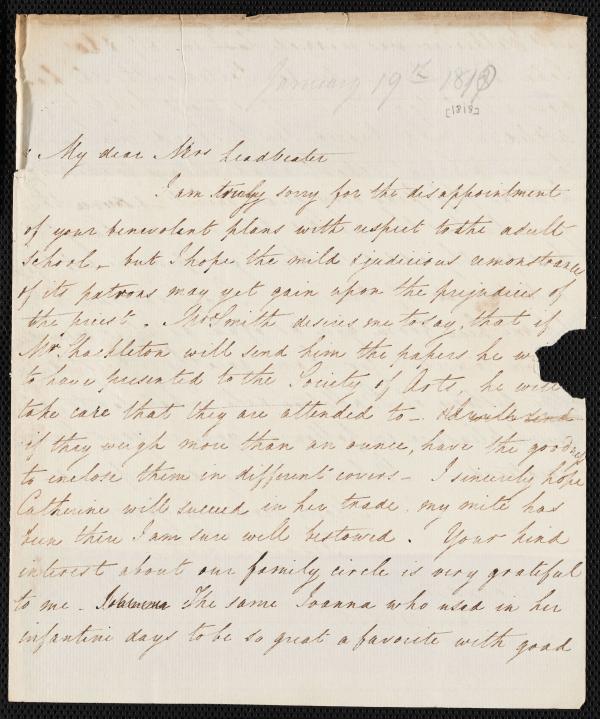 January 19th 1818
[1818]
My dear Mrs Leadbeater
I am truly sorry for the disappointment
of your benevolent plans with respect to the adult
School - but I hope the mild & judicious remonstrances
of its patrons may yet gain upon the prejudices of
the priest. Mr Smith desires me to say, that if
Mr Shackleton will send him the papers he w
to have presented to the Society of Arts, he will
take care that they are attended to - & will send
if they weigh more than an ounce, have the goodness
to inclose them in different covers - I sincerely hope
Catherine will succeed in her trade. my mite has
been there I am sure well bestowed. Your kind
interest about our family circle is very grateful
to me - The same Joanna who used in her
infantine days to be so great a favorite with good